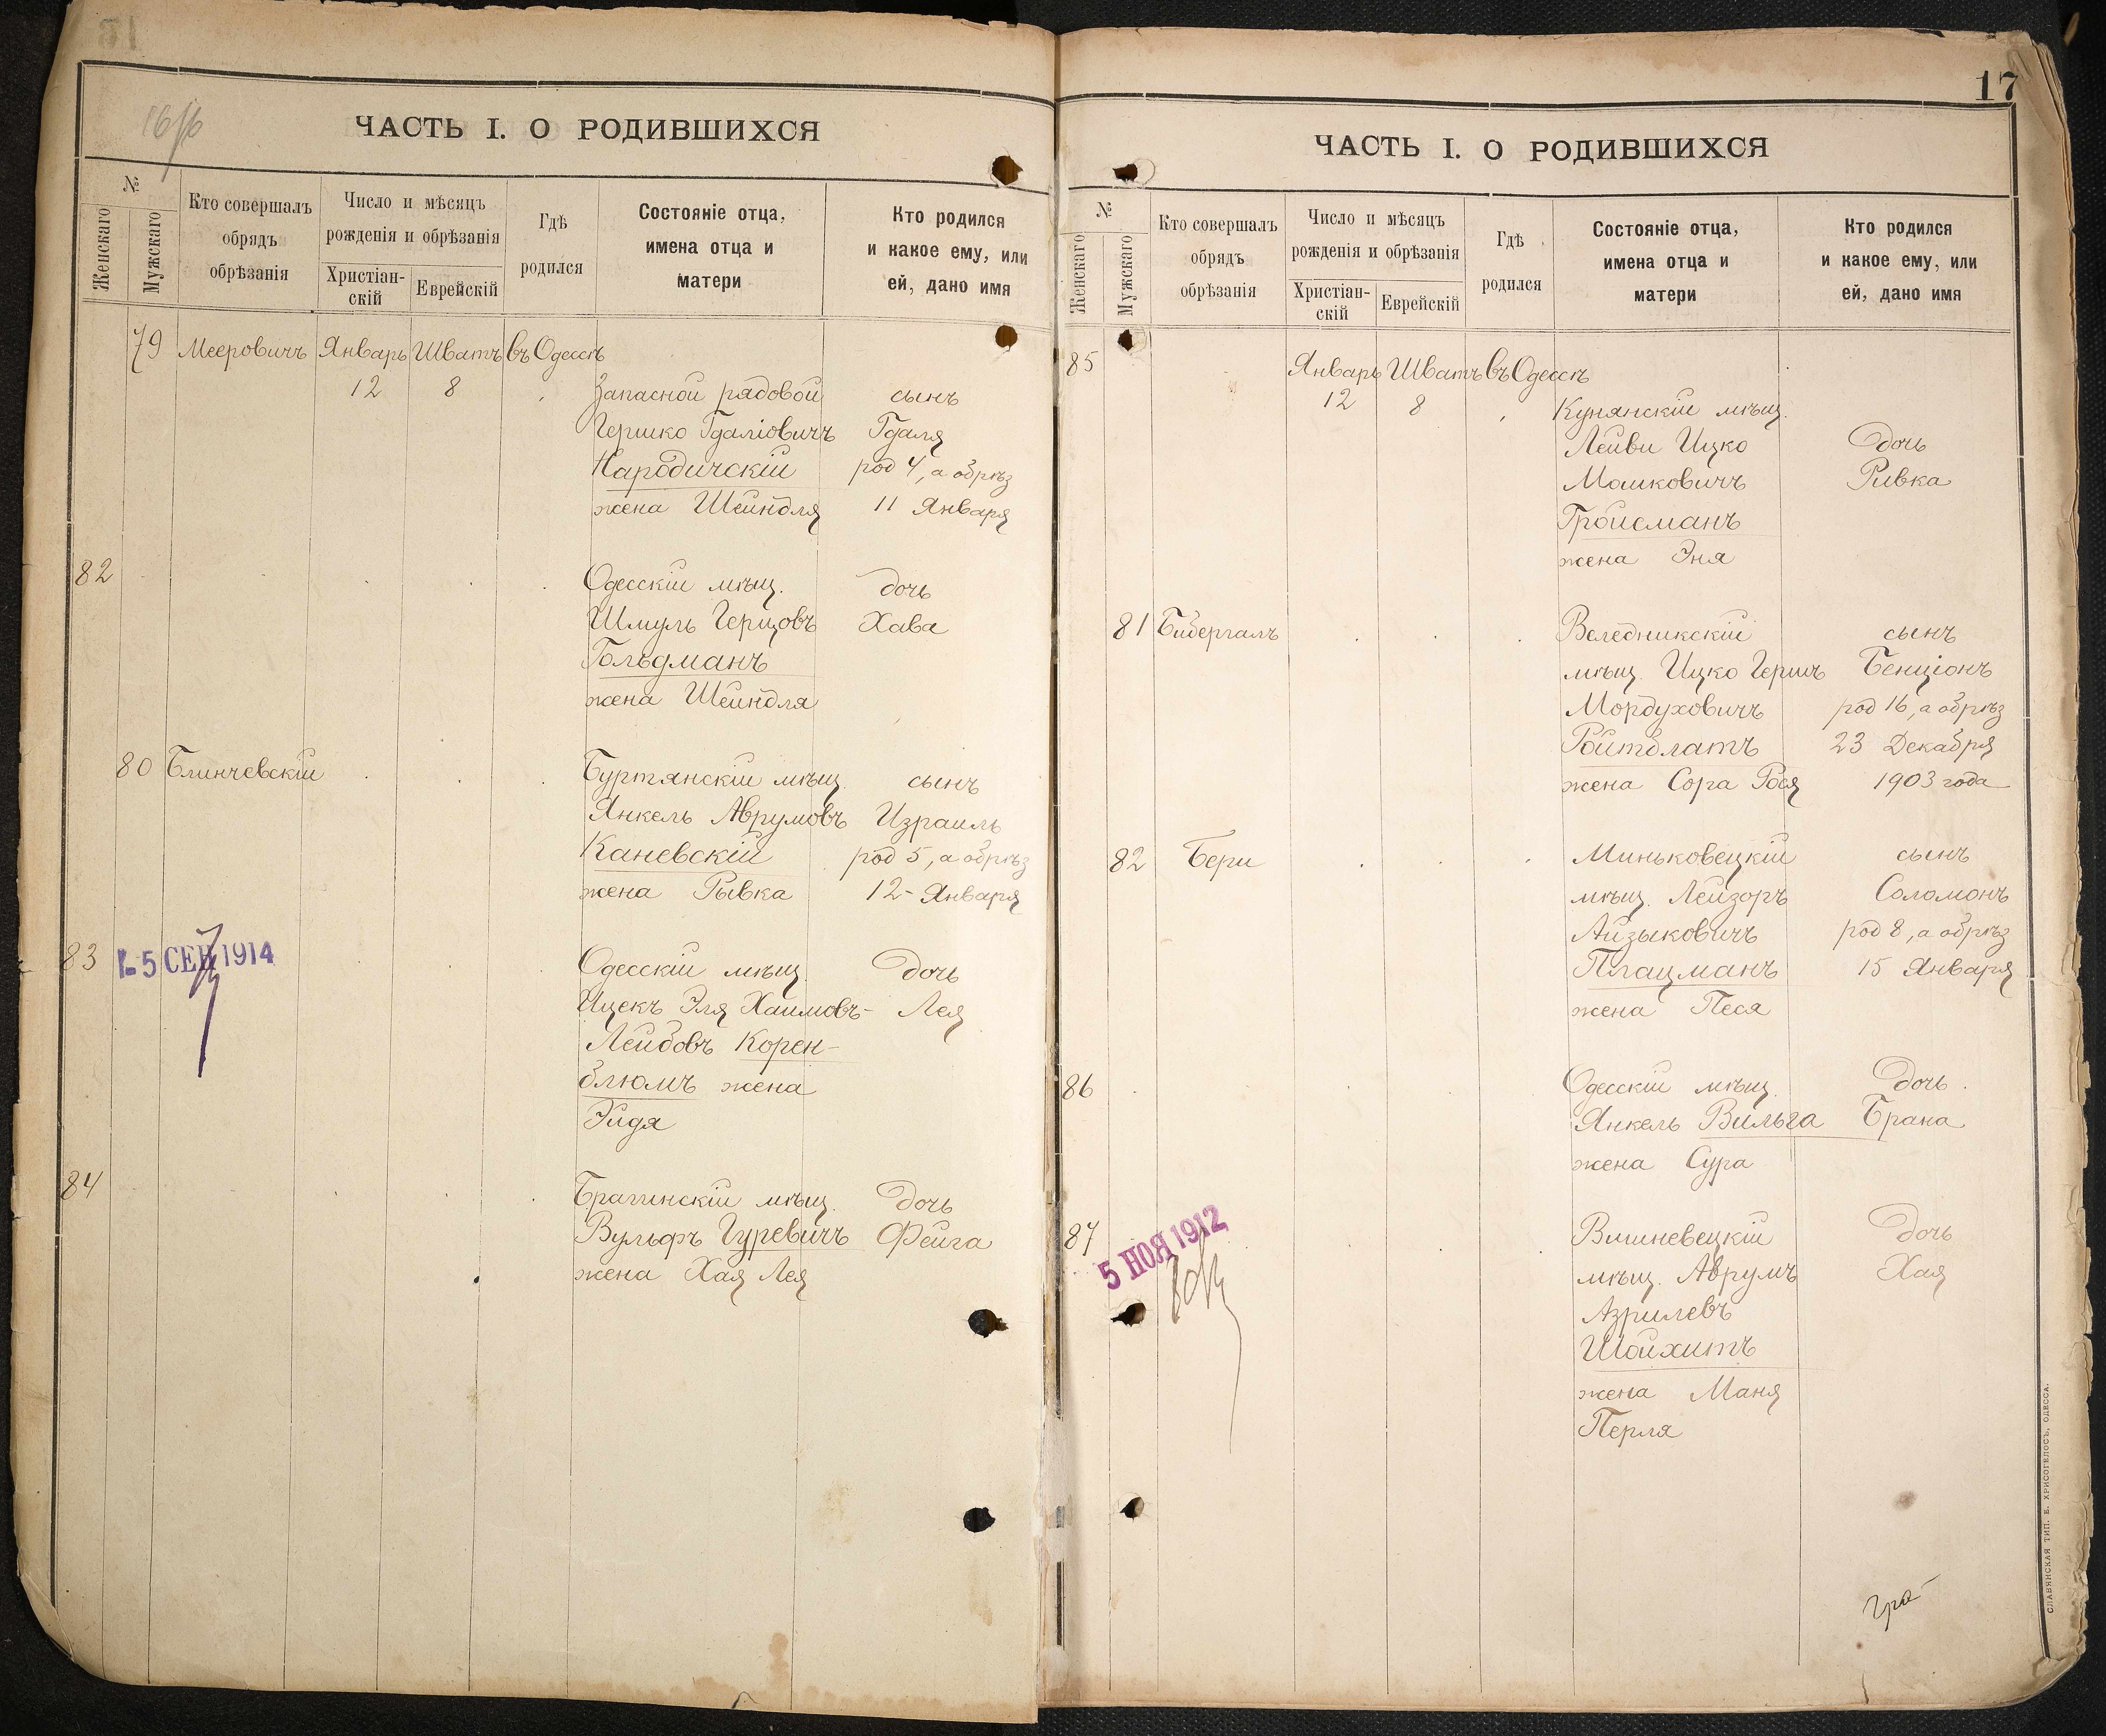 16 об
ЧАСТЬ I. О РОДИВШИХСЯ
№
Женскаго
Мужскаго
Кто совершалъ
обрядъ
обрѣзанія
Число и мѣсяцъ
рожденія и обрѣзанія
Христіан-
скій
Еврейскій
Гдѣ
родился
Состояніе отца,
имена отца и
матери
Кто родился
и какое ему, или
ей, дано имя
79 Мееровичъ Январь Шватъ въ Одессѣ
12 8 Запасной рядовой сынъ
Гершко Гдаліовичъ Гдаля
Народичскій род 4, а обрѣз
жена Шейндля 11 Января
82 Одесскій мѣщ. дочь
Шмуль Герцовъ Хава
Гольдманъ
жена Шейндля
80 Блинчевскій Буртянскій мѣщ. сынъ
Янкель Аврумовъ Израиль
Каневскій род 5, а обрѣз
жена Рывка 12 - Января
83 5 СЕН 1914 Одесскій мѣщ. Дочь
Ицекъ Эля Хаимовъ- Лея
Лейбовъ Корен-
блюмъ жена
Эйдя
84 Брагинскій мѣщ. дочь
Вульфъ Гуревичъ Фейга
жена Хая Лея
17
ЧАСТЬ I. О РОДИВШИХСЯ
№
Женскаго
Мужскаго
Кто совершалъ
обрядъ
обрѣзанія
Число и мѣсяцъ
рожденія и обрѣзанія
Христіан-
скій
Еврейскій
Гдѣ
родился
Состояніе отца,
имена отца и
матери
Кто родился
и какое ему, или
ей, дано имя
85 Январь Шватъ въ Одессѣ
12 8 Кунянскій мѣщ.
Лейви Ицко Дочь
Мошковичъ Ривка
Гройсманъ
жена Эня
81 Бибергалъ Веледникскій сынъ
мѣщ. Ицко Гершъ Бенціонъ
Мордуховичъ род 16, а обрѣз
Ройтблатъ 23 Декабря
жена Сора Рося 1903 года
82 Бери Миньковецкій сынъ
мѣщ. Лейзоръ Соломонъ
Айзыковичъ род 8, а обрѣз
Плацманъ 15 Января
жена Песя
86 Одесскій мѣщ. Дочь
Янкель Вильга Брана
жена Сура
87 5 НОЯ 1912 Вишневецкій Дочь
мѣщ. Аврумъ Хая
Азрилевъ
Шойхитъ
жена Маня
Перля
СЛАВЯНСКАЯ ТИП. Е. ХРИСОГЕЛОСЪ, ОДЕССА.